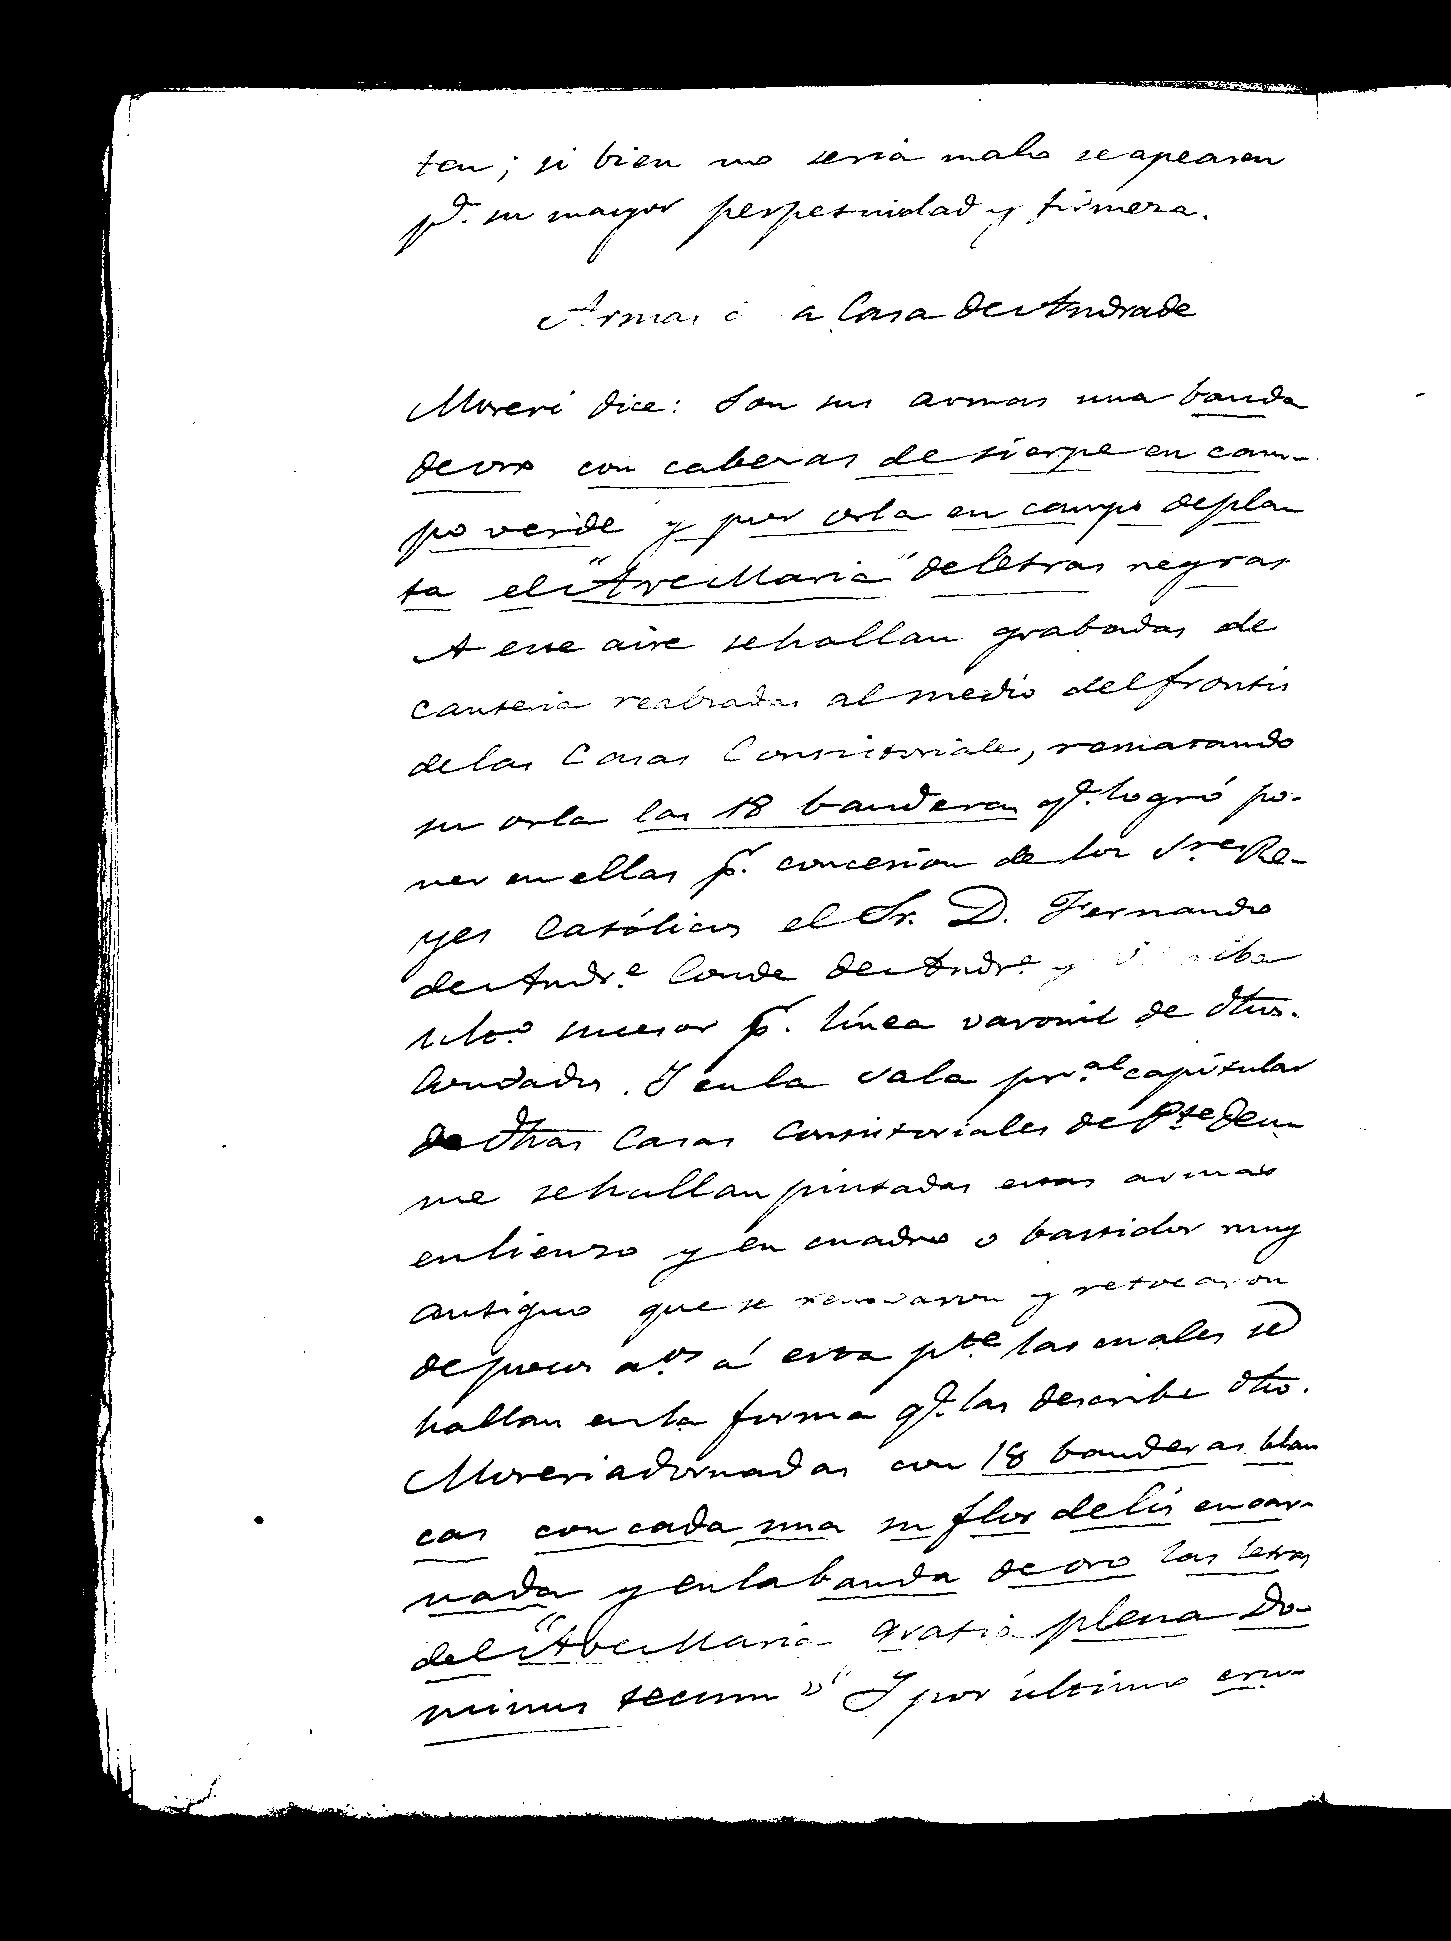 ten; si bien no seria malo se apearen
pª. su mayor perpetuidad y firmeza.
Armas a Casa de Andrade
Moreri dice: Son sus armas una banda
de oro con cabezas de sierpe en cam-
po verde y por orla en campo de pla-
ta el "Ave Maria" de letras negras
A ese aire se hallan grabadas de
canteria realzadas al medio del frontis
de las Casas Consistoriale, rematando
su orla las 18 banderas qe. logró po-
ner en ellas pr. concesion de los Sres. Re-
yes Católicos el Sr. D. Fernando
de Andre. Conde de Andre. y
sucesor pr. línea varonil de dhos.
Condados. Y en la sala pral. capitular
de dhas Casas Consistoriales de Pte. deu-
me se hallan pintadas estas armas
en lienzo y en cuadro o bastidor muy
antiguo que se renovaron y retocaron
de pocos aos. á esta pte. las cuales se
hallan en la forma qe. las describe dho.
Moreri adornadas con 18 banderas blan
cas con cada una su flor de lis encar-
nada y en la banda de oro las letras
del "Ave Maria gratia plena Do-
minus tecum" Y por último